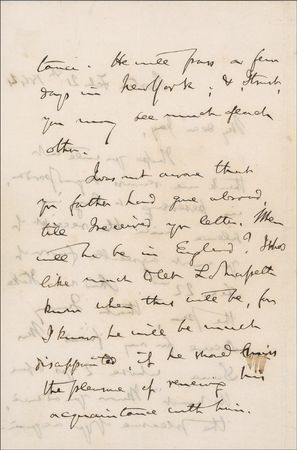 tance. He will pass a few
days in New York; & I trust
you may see much of each
other.
I was not aware that
yr father had gone abroad,
till I received yr letter. When
will he be in England? I shd
like much to let L.
know when this will be, for
I know he will be much
disappointed, if he should
the pleasure of renewing his
acquaintance with him.